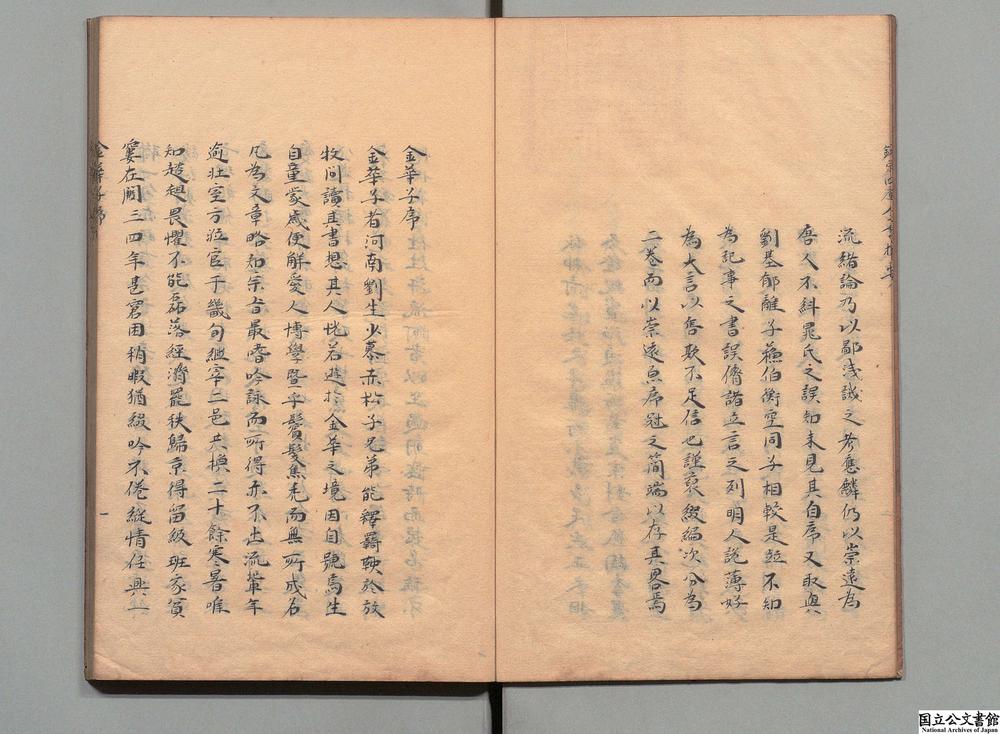 流緒論乃以鄙淺譏之考應麟仍以崇遠為
唐人不糾晁氏之誤知未見其自序又取與
劉基郁離子蘇伯衡空同子相較是竝不知
為記事之書誤儕諸立言之列明人說薄好
為大言以售欺不足信也謹裒綴編次分為
二卷而以崇遠自序冠之簡端以存其畧焉
金華子序
金華子者河南劉生少慕赤松子兄弟能釋羇鞅於放
牧間讀其書想其人恍若遊於金華之境因自號焉生
自童蒙歲便解愛人博學暨乎鬢髮焦禿而無所成名
凡為文章略知宗旨最嗜吟詠而所得亦不出流輩年
逾壯室方涖官于畿甸繼宰二邑共換二十餘寒暑唯
知趑趄畏懼不能磊落經濟罷秩歸京得留級班家貧
窶在闕三四年甚窘困稍暇猶綴吟不倦縱情任興一
金華子序
一
国立公文書館
National Archives of Japan